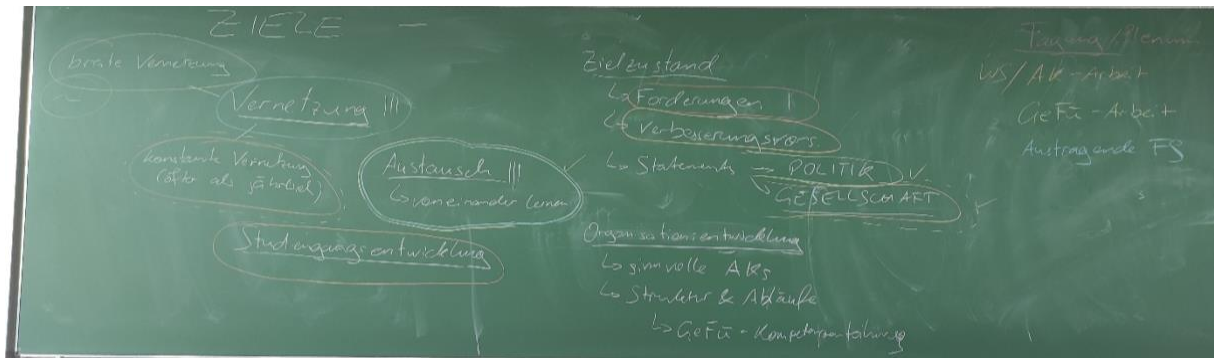 ZIELE —
breite Vernetzung
Vernetzung |||
konstante Vernetzung
(öfter als jährlich)
Austausch |||
↳ voneinander lernen
Studiengangsentwicklung
Zielzustand
↳ Forderungen |
↳ Verbesserungsvors.
↳ Statements → POLITIK
GESELLSCHAFT
Organisationsentwicklung
↳ sinnvolle AKs
↳ Struktur & Abläufe
↳ GeFü-Kompetenz
Tagung/Plenum
WS/AK-Arbeit
GeFü-Arbeit
Austragende FS